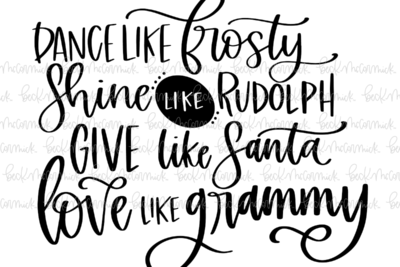 DANCE LIKE frosty
Shine LIKE RUDOLPH
GIVE like Santa
love LIKE grammy